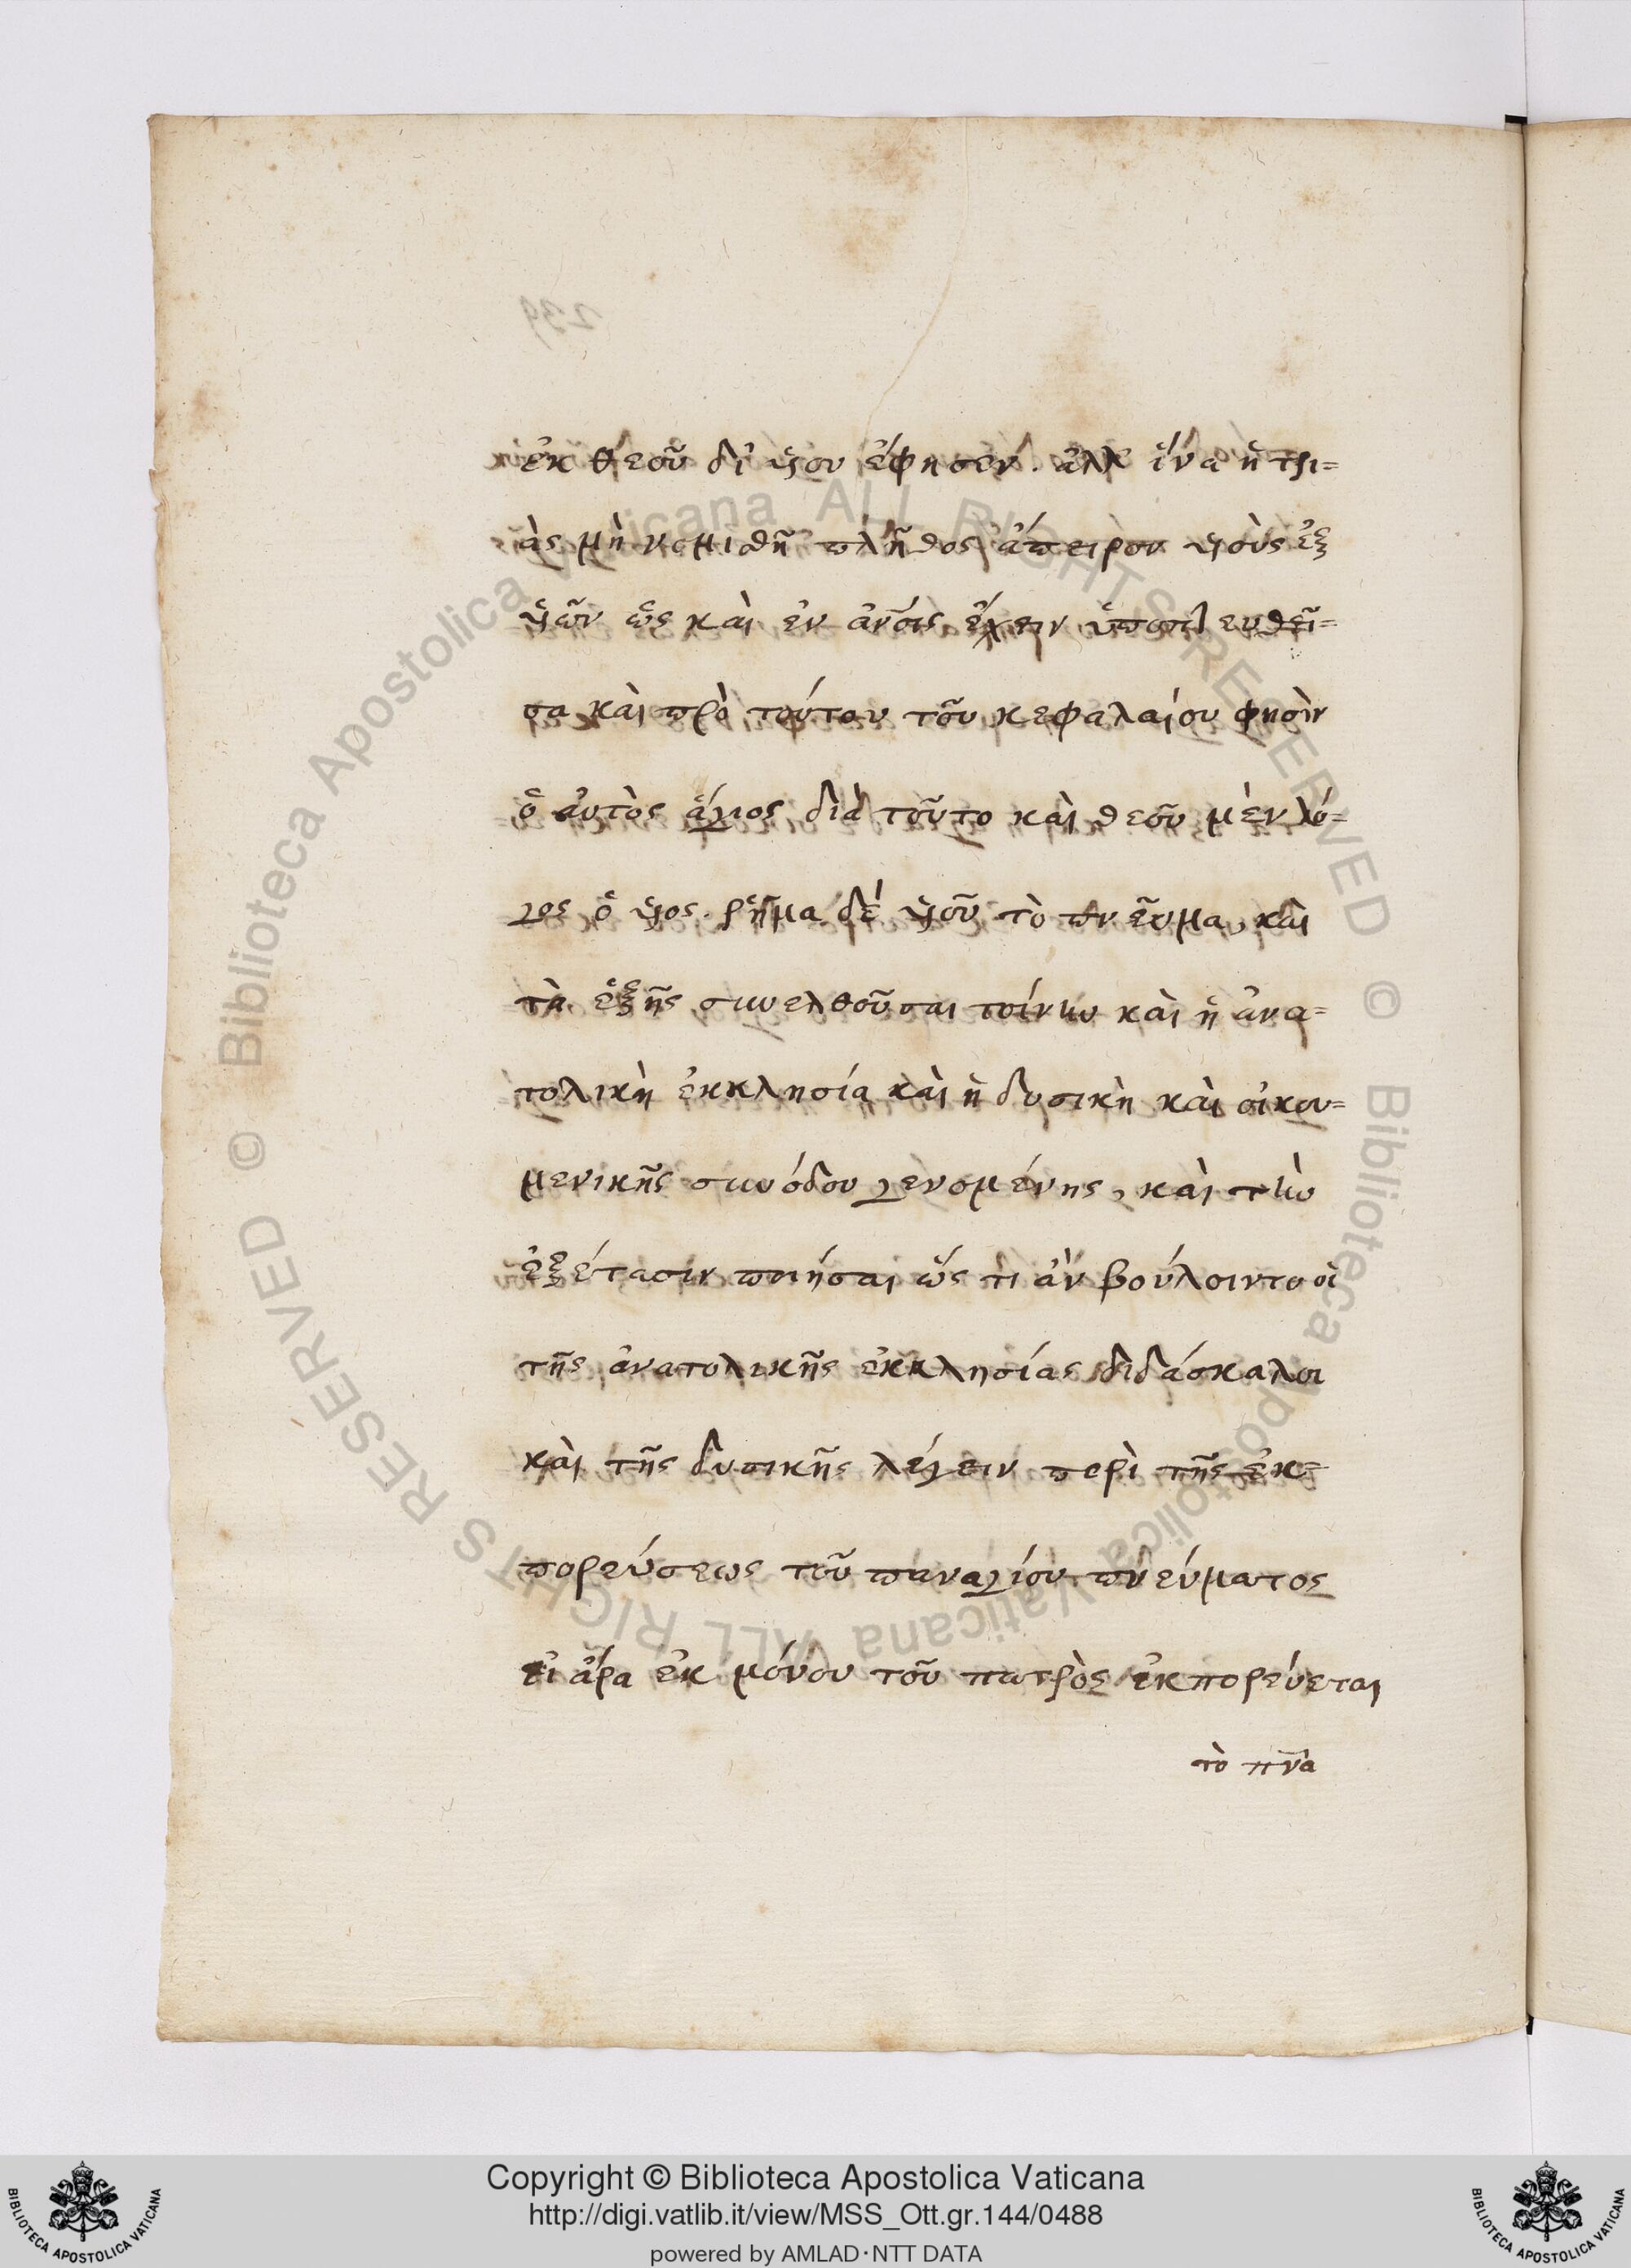 239
ἐκ θεοῦ δι' ὑιου ἔφησεν. ἀλλ' ἵνα ἡ τρι=
ὰς μὴ νομισθῆ πλῆθος ἄπειρον ὑιοὺς ἐξ
ὑιῶν ὡς καὶ ἐν ἀν̅οις ἔχειν ὑποπτευθεῖ=
σα καὶ πρὸ τούτου τοῦ κεφαλαίου φησὶν
ὁ αὐτὸς ἅγιος διὰ τοῦτο καὶ θεοῦ μὲν λό=
γος ὁ ὑιος. ῥῆμα δὲ ὑιοῦ τὸ πνεῦμα, καὶ
τὰ ἑξῆς συνελθοῦσαι τοίνυν καὶ ἡ ἀνα=
τολικὴ ἐκκλησία καὶ ἡ δυσικὴ καὶ οἰκου=
μενικῆς συνόδου γενομένης, καὶ τὴν
ἐξέτασιν ποιήσαι ὥς τι ἂν βούλοιντο οἱ
τῆς ἀνατολικῆς ἐκκλησίας διδάσκαλοι
καὶ τῆς δυσικῆς λέγειν περὶ τῆς ἐκ=
πορεύσεως τοῦ παναγίου πνεύματος
εἰ ἄρα ἐκ μόνου τοῦ πατρὸς ἐκπορεύεται
τὸ πν̅α
Biblioteca Apostolica Vaticana ALL RIGHTS RESERVED © Biblioteca Apostolica Vaticana ALL RIGHTS RESERVED ©
Copyright © Biblioteca Apostolica Vaticana
http://digi.vatlib.it/view/MSS_Ott.gr.144/0488
powered by AMLAD·NTT DATA
BIBLIOTECA APOSTOLICA VATICANA
BIBLIOTECA APOSTOLICA VATICANA